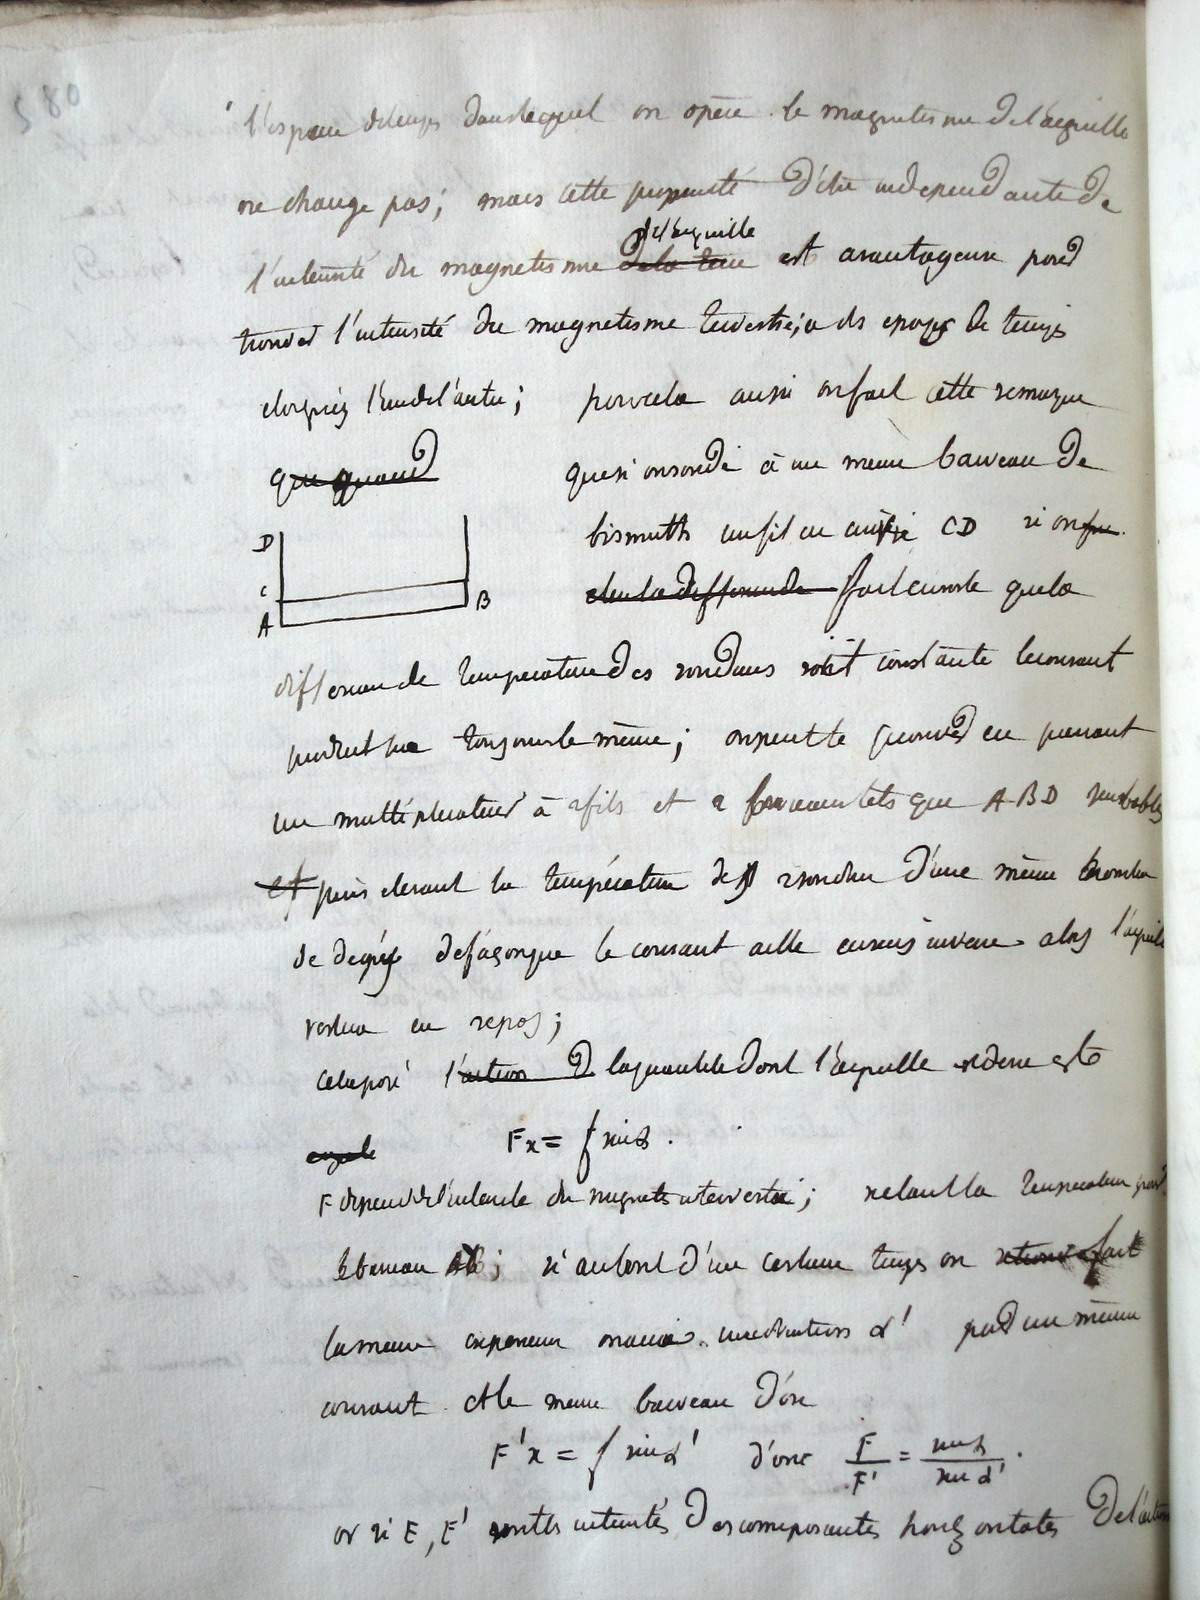 580
l'espace de temps dans lequel on opère le magnetisme de l'aiguille
ne change pas; mais cette propriété d'être independante de
de l'aiguille
l'intensité du magnetisme de la terre est avantageuse pour
trouver l'intensité du magnetisme terrestre, a des epoques de temps
eloignés l'un de l'autre; pour cela aussi on fait cette remarque
que quand que si on soude à un meme barreau de
bismuth un fil en cuivre CD si on
D
C
A
B
de la difference fait ensorte que la
difference de temperature des soudures soit constante le courant
produit sera toujours le même; on peut le prouver en prenant
un multiplicateur à 2 fils et 2 barreaux tels que ABD semblables
et puis elevant la température des 2 soudures d'une même nombre
de degrés de façon que le courant aille en sens inverse alors l'aiguille
restera en repos;
cela posé l'action la quantité dont l'aiguille est
egale Fx = f sin α.
F depend de l'intensité du magnetisme terrestre; x etant la temperature pour
le barreau AB; si au bout d'un certain temps on fait
la meme experience on aura une deviation α' par un même
courant et le meme barreau d'où
F'x = f sin α' d'onc F/F' = sin α/sin α'.
or si F, F' sont les intensités des composantes horizontales de l'action